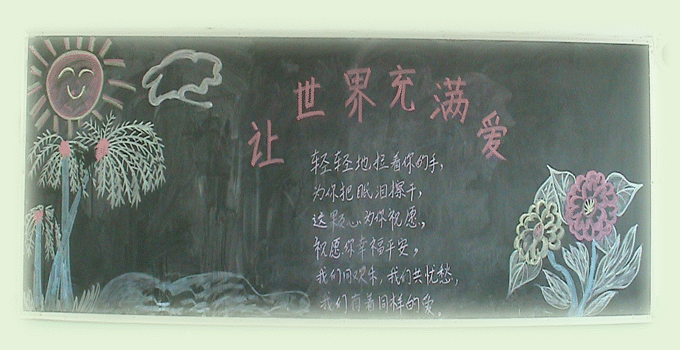 让世界充满爱
轻轻地拦着你的手，
为你把眼泪擦干，
这颗心为你祝愿，
祝愿你幸福平安，
我们同欢乐，我们共忧愁，
我们有着同样的爱，